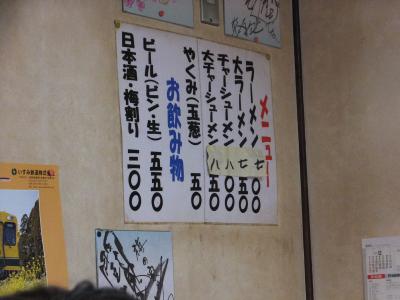 メニュー
ラーメン 七〇〇
大ラーメン 七五〇
チャーシューメン 八〇〇
大チャーシューメン 八五〇
やくみ(玉葱) 五〇
お飲み物
ビール(ビン・生) 五五〇
日本酒・梅割り 三〇〇
いすみ鉄道株式会社